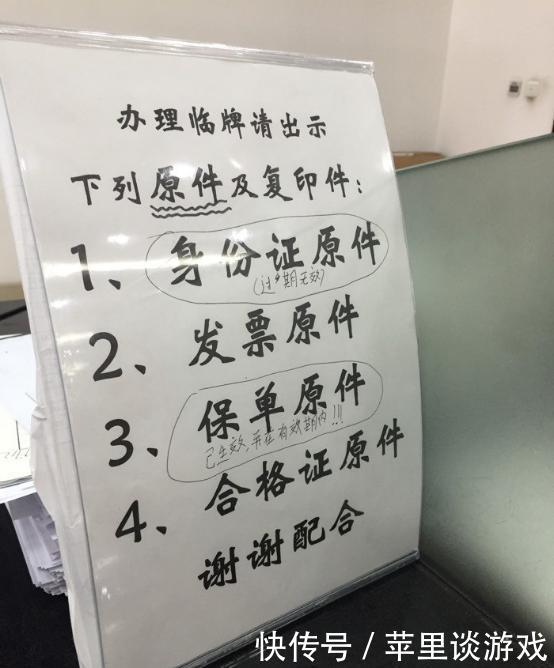 办理临牌请出示
下列原件及复印件：
1、身份证原件
（过期无效）
2、发票原件
3、保单原件
已生效，并在有效期内!!!
4、合格证原件
谢谢配合
快传号 / 苹里谈游戏